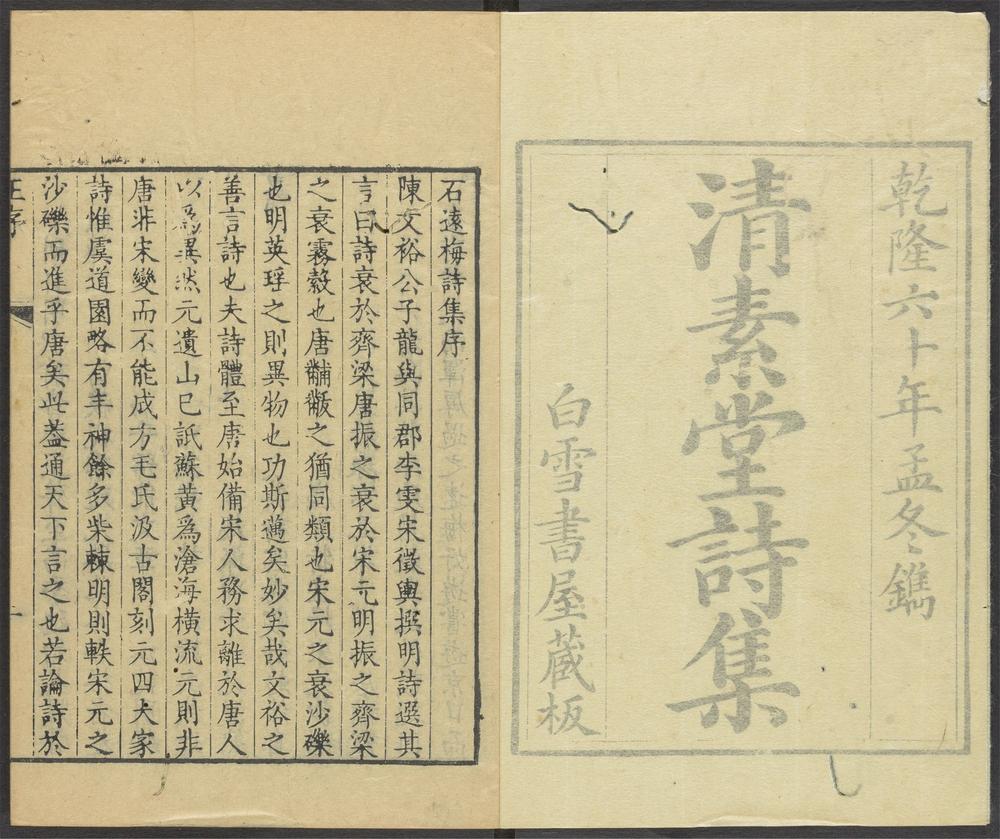 乾隆六十年孟冬鐫
清素堂詩集
白雪書屋蔵板
石遠梅詩集序
陳文裕公子龍與同郡李雯宋徵輿撰明詩選其
言曰詩衰於齊梁唐振之衰於宋元明振之齊梁
之衰霧縠也唐黼黻之猶同類也宋元之衰沙礫
也明英瑶之則異物也功斯邁矣妙矣哉文裕之
善言詩也夫詩體至唐始備宋人務求離於唐人
以爲異然元遺山已詆蘇黃爲滄海橫流元則非
唐非宋變而不能成方毛氏汲古閣刻元四大家
詩惟虞道園略有丰神餘多柴棘明則軼宋元之
沙礫而進乎唐矣此葢通天下言之也若論詩於
王序
一